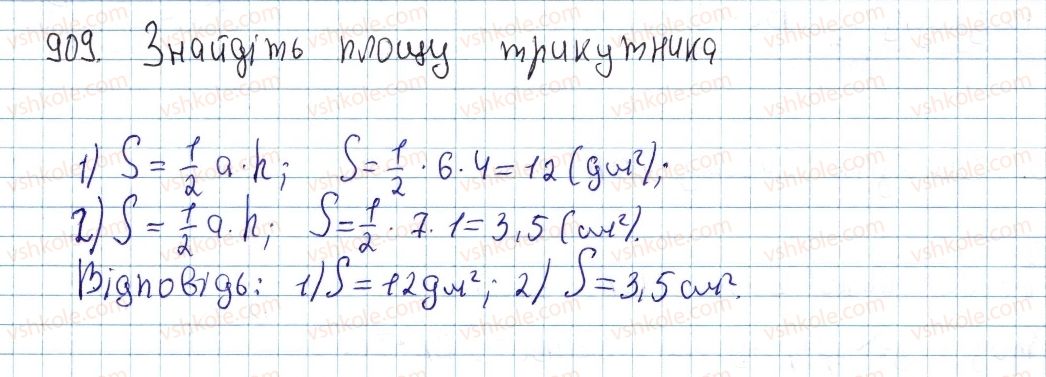 909. Знайдіть площу трикутника
1) S = 1/2 a · h; S = 1/2 · 6 · 4 = 12 (дм²);
2) S = 1/2 a · h; S = 1/2 · 7 · 1 = 3,5 (см²).
Відповідь: 1) S = 12 дм²; 2) S = 3,5 см².